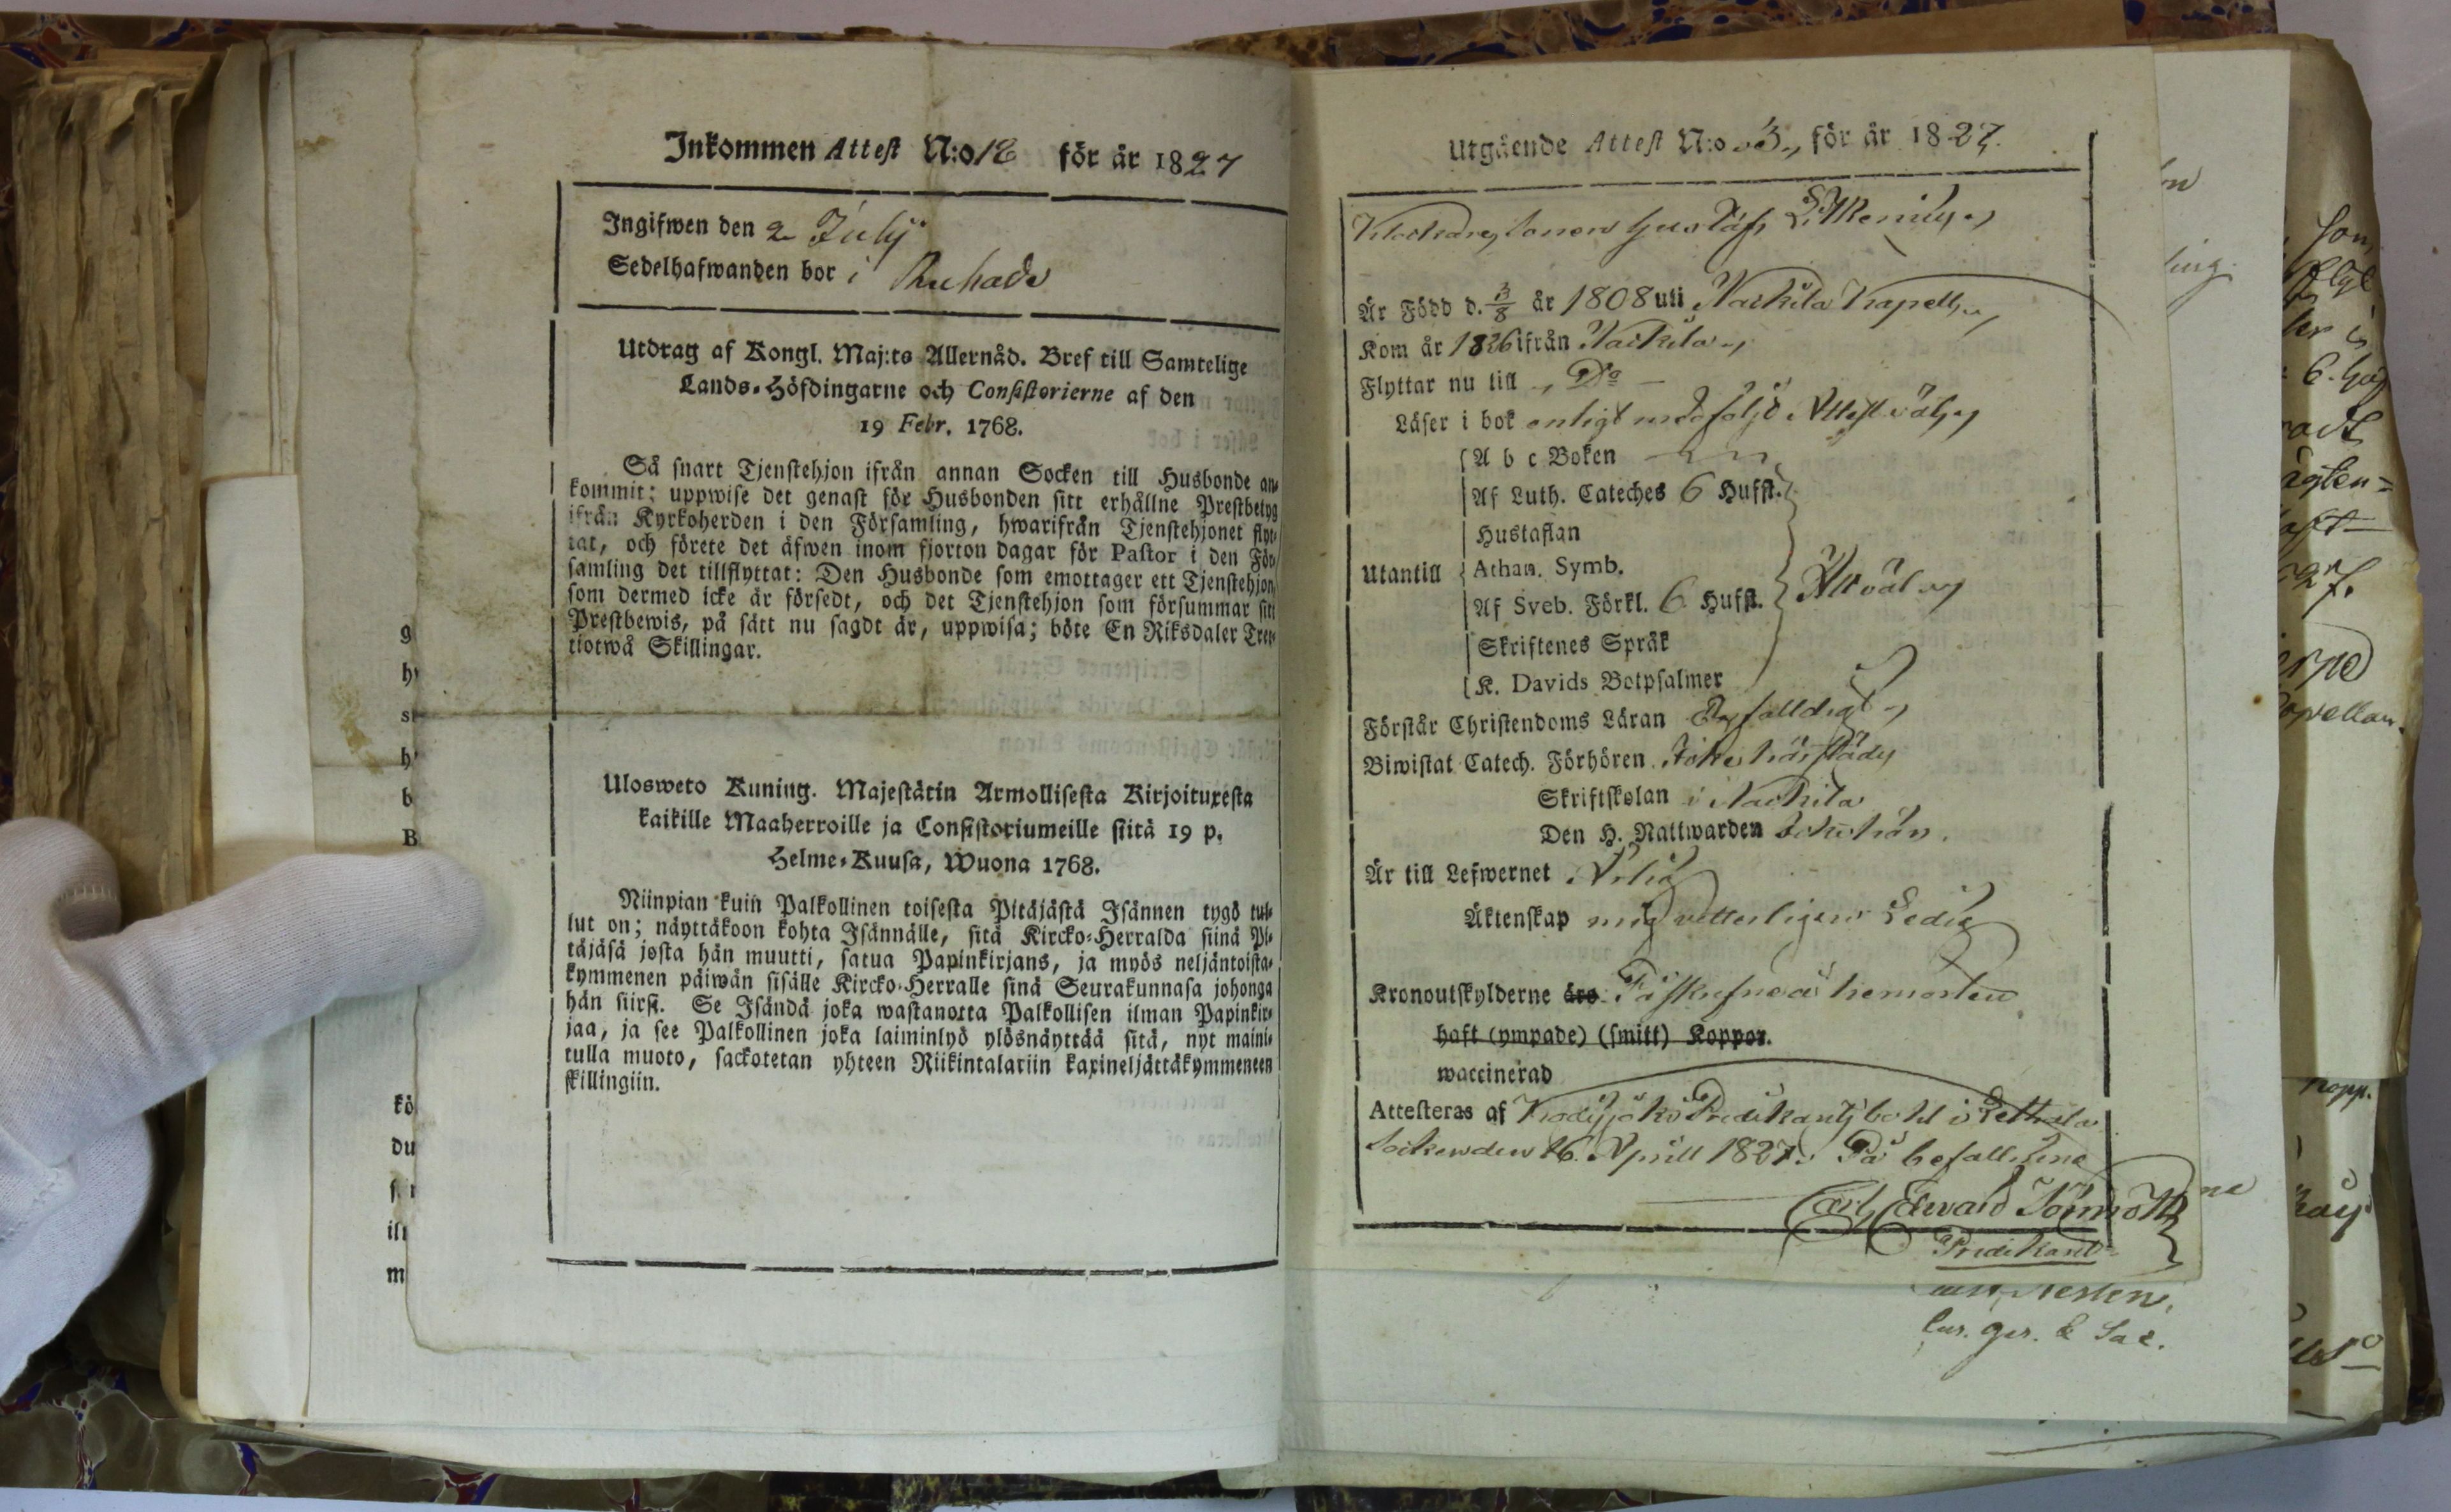 Inkommen Attest N:o 18 för år 1827
Ingifwen den 2 Julij
Sedelhafwanden bor i
Utdrag af Kongl. Maj:ts Allernåd. Bref till Samtelige
Lands-Höfdingarne och Consistorierne af den
19 Febr. 1768.
Så snart Tjenstehjon ifrån annan Socken till Husbonde an-
kommit; uppwise det genast för Husbonden sitt erhållne Prestbetyg
ifrån Kyrkoherden i den Församling, hwarifrån Tjenstehjonet flyt-
tat, och förete det äfwen inom fjorton dagar för Pastor i den För-
samling det tillflyttat: Den Husbonde som emottager ett Tjenstehjon
som dermed icke är försedt, och det Tjenstehjon som försummar sitt
Prestbewis, på sätt nu sagdt är, uppwisa; böte En Riksdaler Tret-
tiotwå Skillingar.
Ulosweto Kuning. Majestätin Armollisesta Kirjoituxesta
kaikille Maaherroille ja Consistoriumeille siitä 19 p.
Helme-Kuusa, Wuona 1768.
Niinpian kuin Palkollinen toisesta Pitäjästä Isännen tygö tul-
lut on; näyttäkoon kohta Isännälle, sitä Kircko-Herralda siinä Pi-
täjäsä josta hän muutti, saatua Papinkirjans, ja myös neljäntoista-
kymmenen päiwän sisälle Kircko-Herralle sinä Seurakunnasa johonga
hän siirsi. Se Isändä joka wastanotta Palkollisen ilman Papinkir-
jaa, ja see Palkollinen joka laiminlyö ylösnäyttää sitä, nyt maini-
tulla muoto, sackotetan yhteen Riikintalariin kaxineljättäkymmeneen
skillingiin.
Utgående Attest N:o 3, för år 1827.
sonen Gustaf
Är Född d. 3/8 år 1808 uti Kapell
Kom år 1826 ifrån
Flyttar nu till D:o
Läser i bok enligt medföljd Attest väl
A b c Boken
Af Luth. Cateches 6 Hufst.
Hustaflan
Utantill Athan. Symb.
Af Sveb. Förkl. 6 Hufst. Allt väl
Skriftenes Språk
K. Davids Botpsalmer
Förstår Christendoms Läran Enfalldigt
Biwistat Catech. Förhören Icke härstädes
Skriftskolan i
Den H. Nattwarden Icke här.
Är till Lefwernet Ärlig
Äktenskap mig vetterligen Ledig
Kronoutskylderne äro Påskrefne å hemorten
haft (ympade) (smitt) Koppor.
waccinerad
Attesteras af Predikants bohl i
Socken den 16 Aprill 1827. På befallning
Carl Edward
Predikant